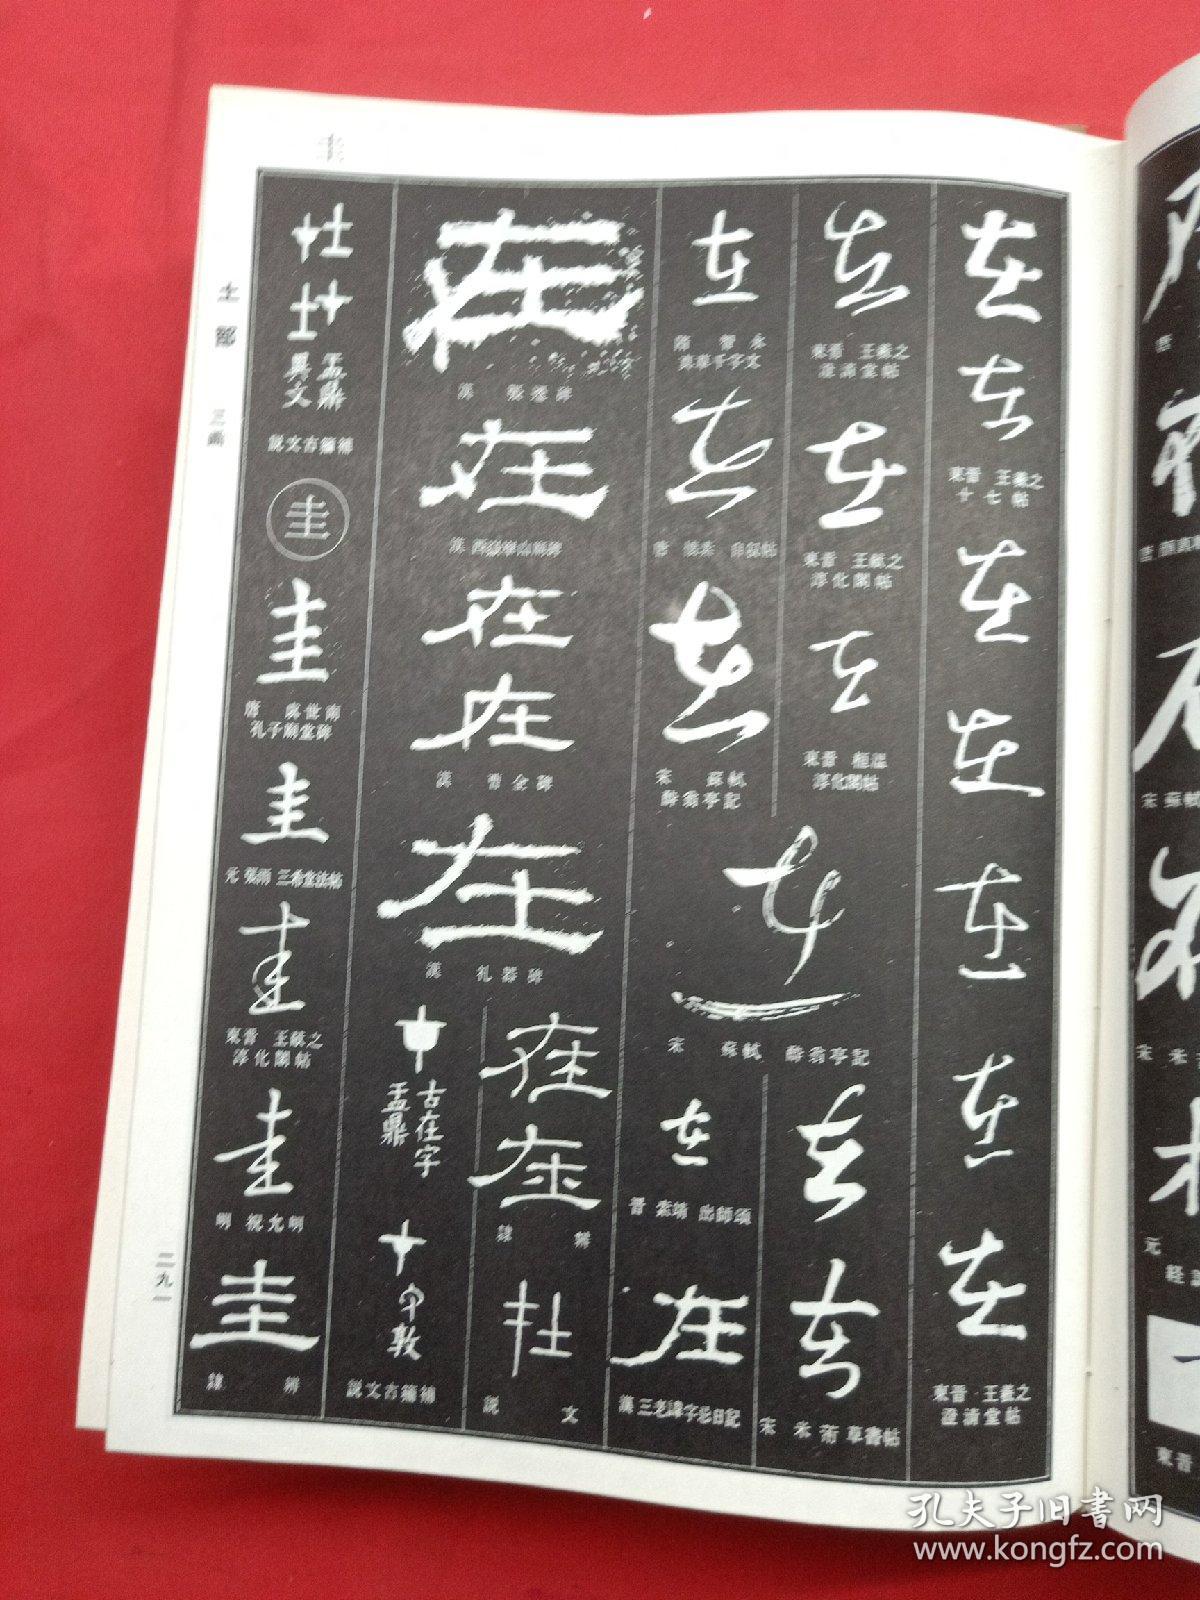 圭
土部
三画
二九一
在
在
東晋 王羲之
十七帖
在
在
在
在
在
東晋 王羲之
澄清堂帖
在
東晋 王羲之
澄清堂帖
在
東晋 王献之
淳化閣帖
在
東晋 桓温
淳化閣帖
在
隋 智永
真草千字文
在
唐 懐素 自叙帖
在
宋 蘇軾
酔翁亭記
在
宋 蘇軾 酔翁亭記
在
在
宋 米芾 草書帖
在
晋 索靖 出師頌
在
漢 三老諱字忌日記
在
漢 張遷碑
在
漢 西嶽華山廟碑
在
在
漢 曹全碑
在
漢 礼器碑
在
在
隷辨
在
説文
古在字
盂鼎
説文古籀補
在
在
盂鼎
異文
説文古籀補
圭
圭
唐 虞世南
孔子廟堂碑
圭
元 張雨 三希堂法帖
圭
東晋 王献之
淳化閣帖
圭
明 祝允明
圭
隷辨
宋 蘇軾
元
東晋
孔夫子旧书网
www.kongfz.com